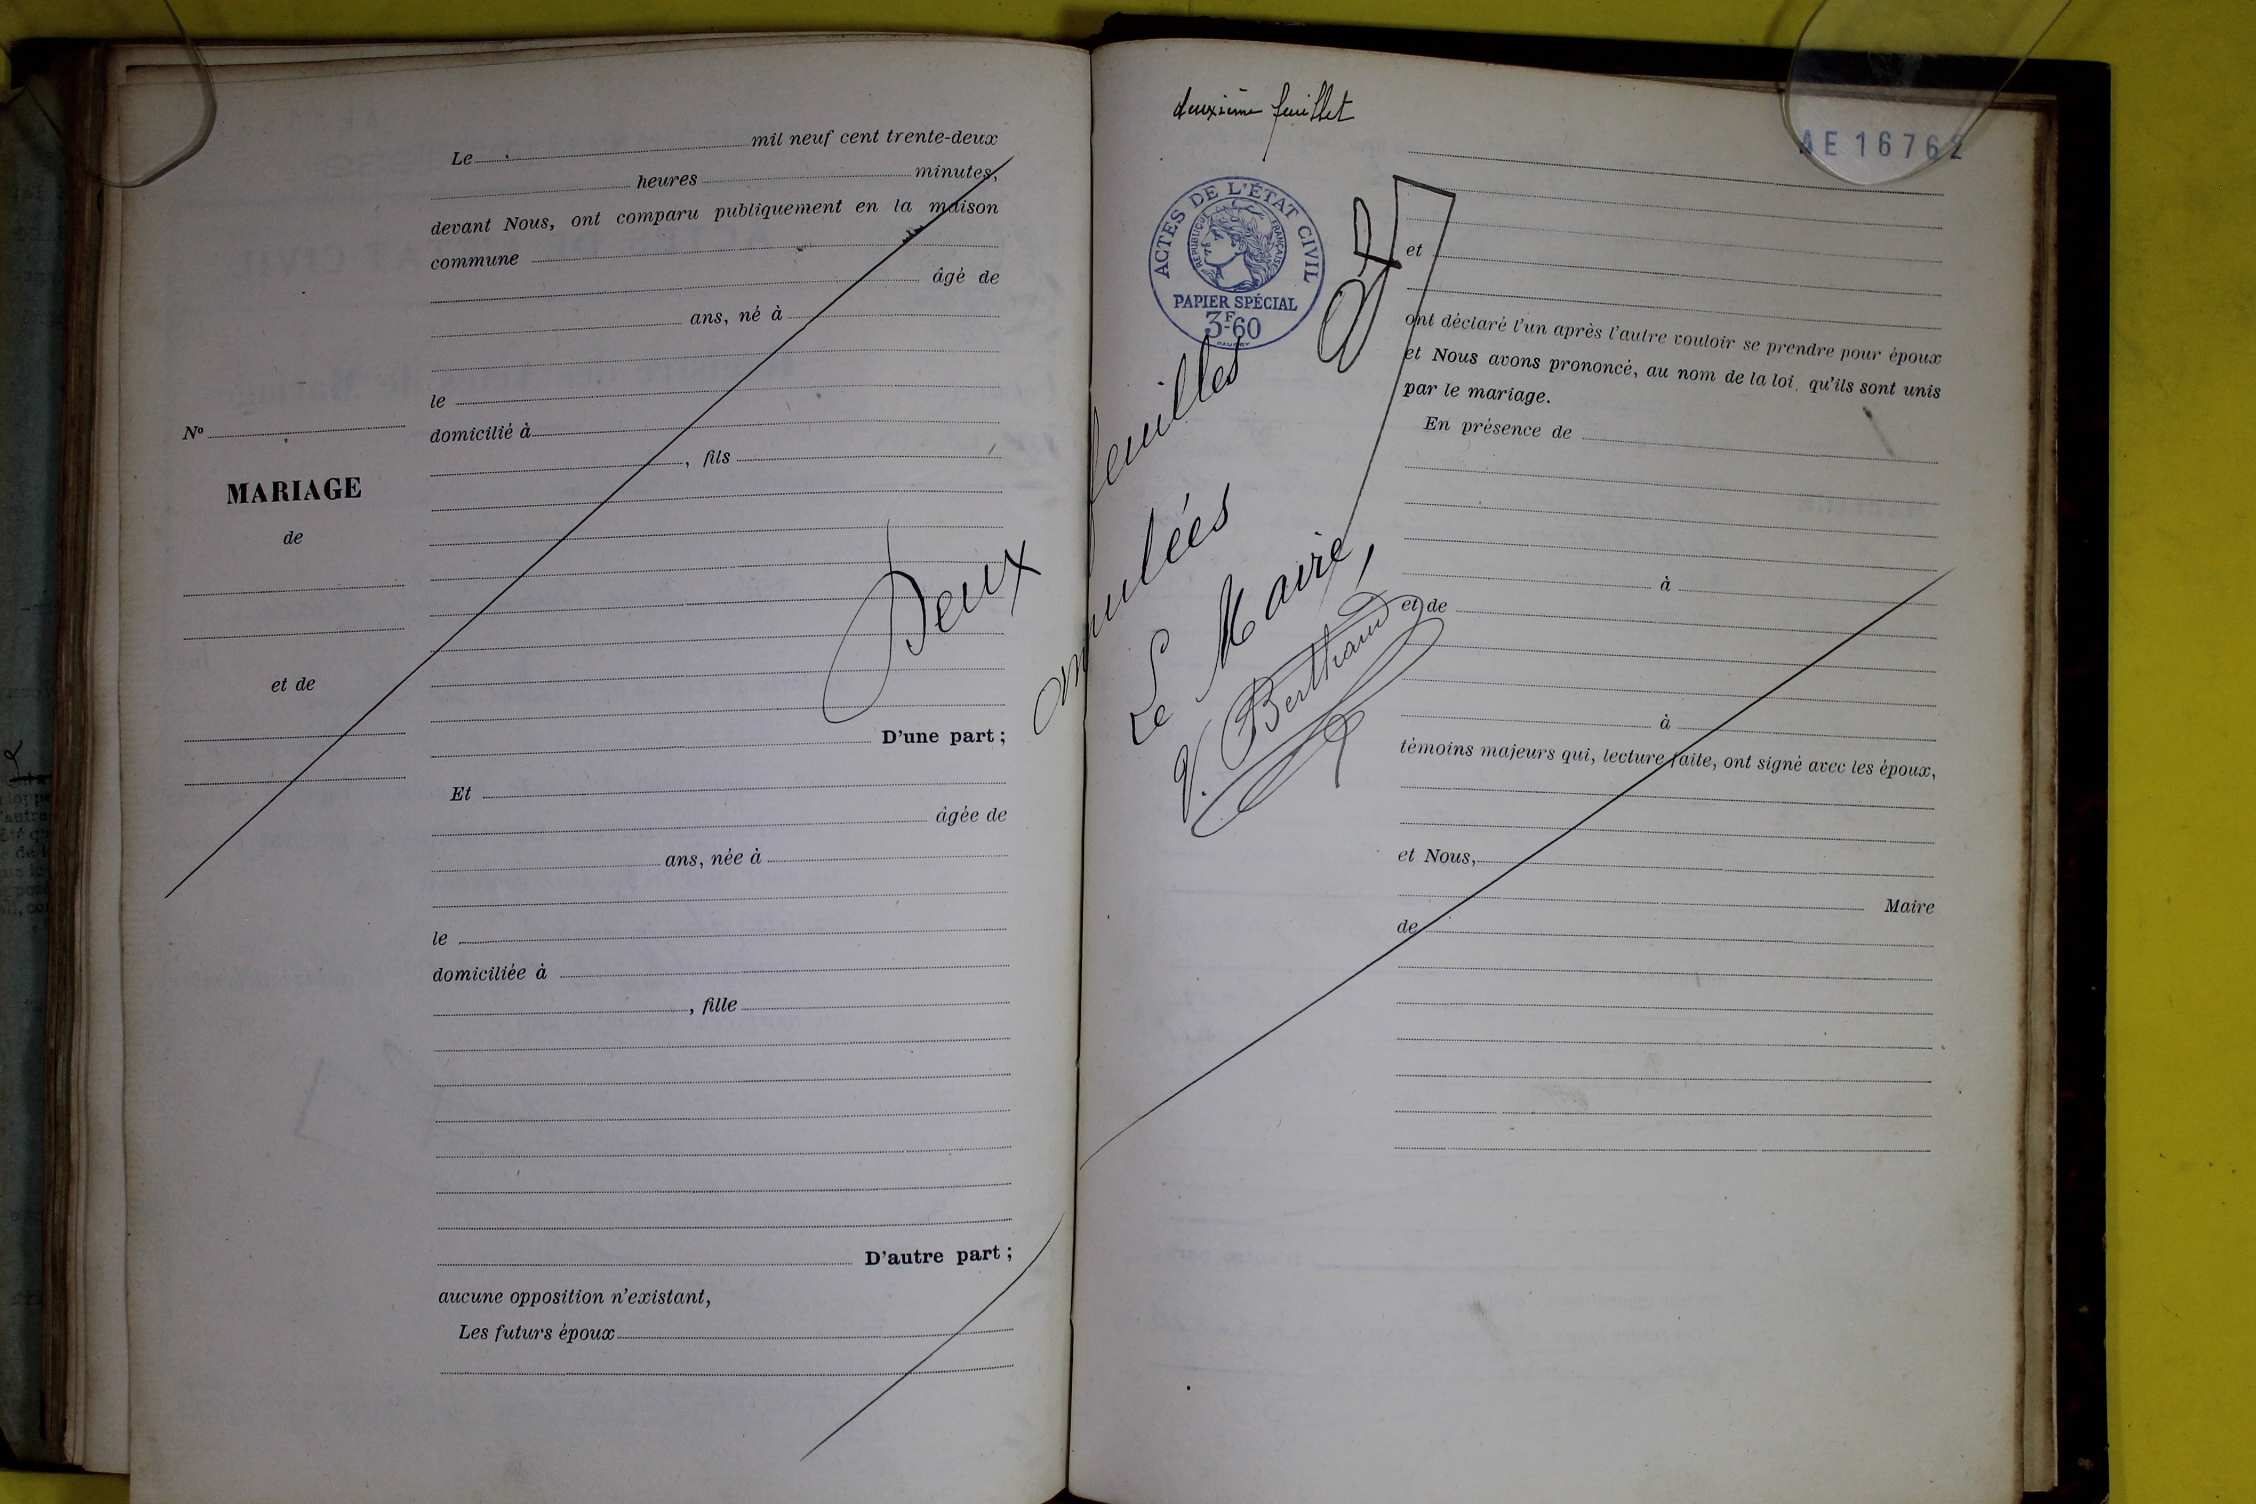 Le mil neuf cent trente-deux
heures minutes,
devant Nous, ont comparu publiquement en la maison
commune
âgé de
ans, né à
le
domicilié à
, fils
D'une part ;
Et
âgée de
ans, née à
le
domiciliée à
, fille
D'autre part ;
aucune opposition n'existant,
Les futurs époux
Nº
MARIAGE
de
et de
Deux feuilles
annulées
Le Maire,
V. Berthaud
deuxième feuillet
AE 16762
ACTES DE L'ÉTAT CIVIL
RÉPUBLIQUE FRANÇAISE
PAPIER SPÉCIAL
3F60
et
ont déclaré l'un après l'autre vouloir se prendre pour époux
et Nous avons prononcé, au nom de la loi, qu'ils sont unis
par le mariage.
En présence de
à
et de
à
témoins majeurs qui, lecture faite, ont signé avec les époux,
et Nous,
Maire
de